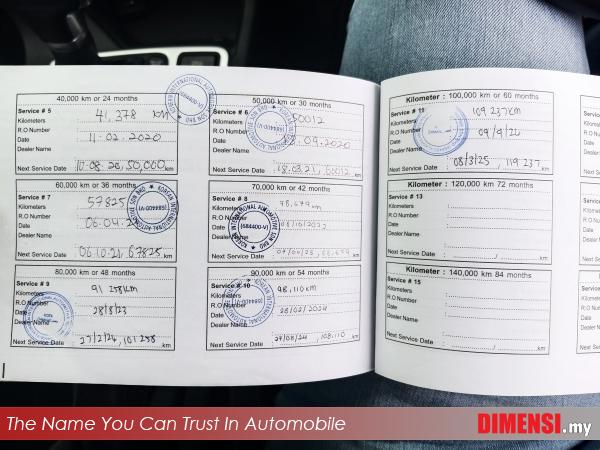 40,000 km or 24 months
Service # 5
Kilometers 41,378 KM
R.O Number
Date 11.02.2020
Dealer Name
Next Service Date 10.08.20, 50,000 km
50,000 km or 30 months
Service # 6
Kilometers 50012
R.O Number
Date .09.2020
Dealer Name
Next Service Date 18.03.21, 60012 km
60,000 km or 36 months
Service # 7
Kilometers 57825
R.O Number
Date 06.04.
Dealer Name
Next Service Date 06.10.21, 67825 km
70,000 km or 42 months
Service # 8
Kilometers 78,679 km
R.O Number
Date /10/2022
Dealer Name
Next Service Date 07/04/23, 88,679 km
80,000 km or 48 months
Service # 9
Kilometers 91 258km
R.O Number
Date 28/8/23
Dealer Name
Next Service Date 27/2/24, 101 258 km
90,000 km or 54 months
Service # 10
Kilometers 98,110 km
R.O Number
Date 28/02/2024
Dealer Name
Next Service Date 27/08/24, 108,110 km
Kilometer : 100,000 km or 60 months
Service # 11
Kilometers 109 237KM
R.O Number
Date 09/9/24
Dealer Name
Next Service Date 08/3/25, 119 237 km
Kilometer : 120,000 km 72 months
Service # 13
Kilometers
R.O Number
Date
Dealer Name
Next Service Date / km
Kilometer : 140,000 km 84 months
Service # 15
Kilometers
R.O Number
Date
Dealer Name
Next Service Date / km
The Name You Can Trust In Automobile
DIMENSI.my